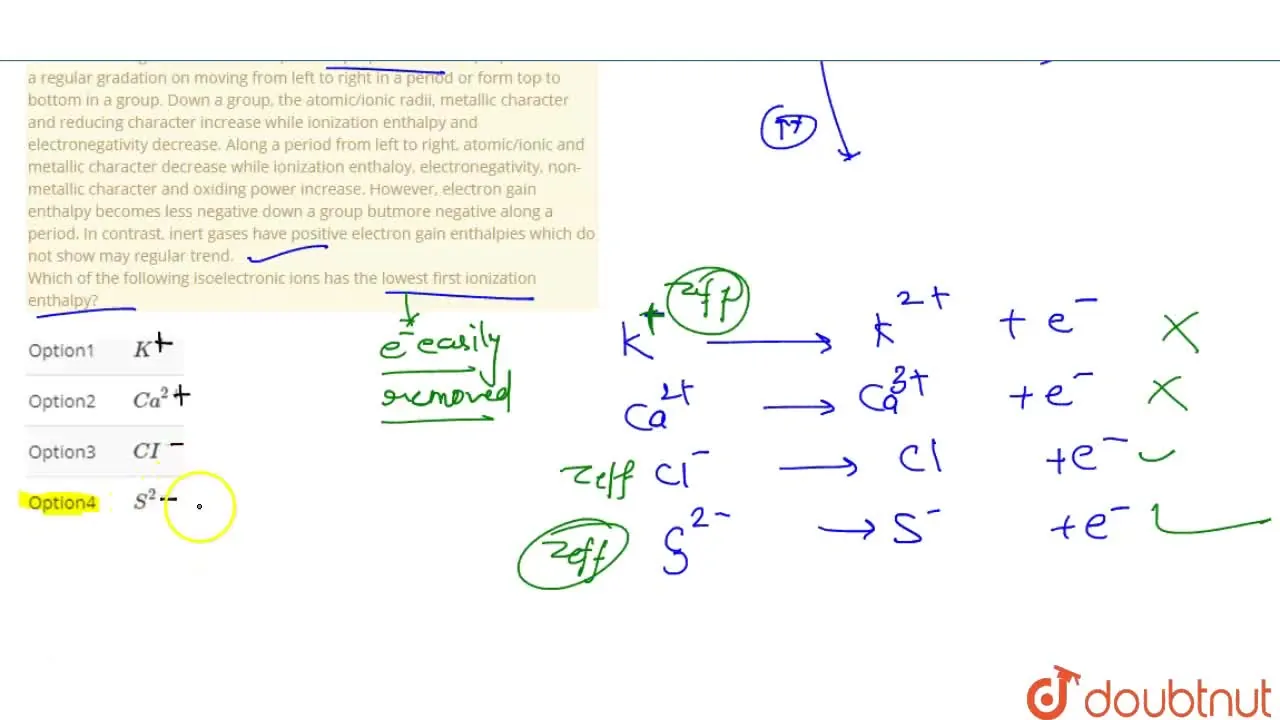 a regular gradation on moving from left to right in a period or form top to
bottom in a group. Down a group, the atomic/ionic radii, metallic character
and reducing character increase while ionization enthalpy and
electronegativity decrease. Along a period from left to right, atomic/ionic and
metallic character decrease while ionization enthaloy, electronegativity, non-
metallic character and oxiding power increase. However, electron gain
enthalpy becomes less negative down a group butmore negative along a
period. In contrast, inert gases have positive electron gain enthalpies which do
not show may regular trend.
Which of the following isoelectronic ions has the lowest first ionization
enthalpy?
e⁻ easily
removed
Option1 K+
Option2 Ca²+
Option3 CI -
Option4 S²-
Zeff
K⁺ → K²⁺ + e⁻ ×
Ca²⁺ → Ca³⁺ + e⁻ ×
Zeff Cl⁻ → Cl + e⁻ ✓
Zeff S²⁻ → S⁻ + e⁻ ✓
doubtnut